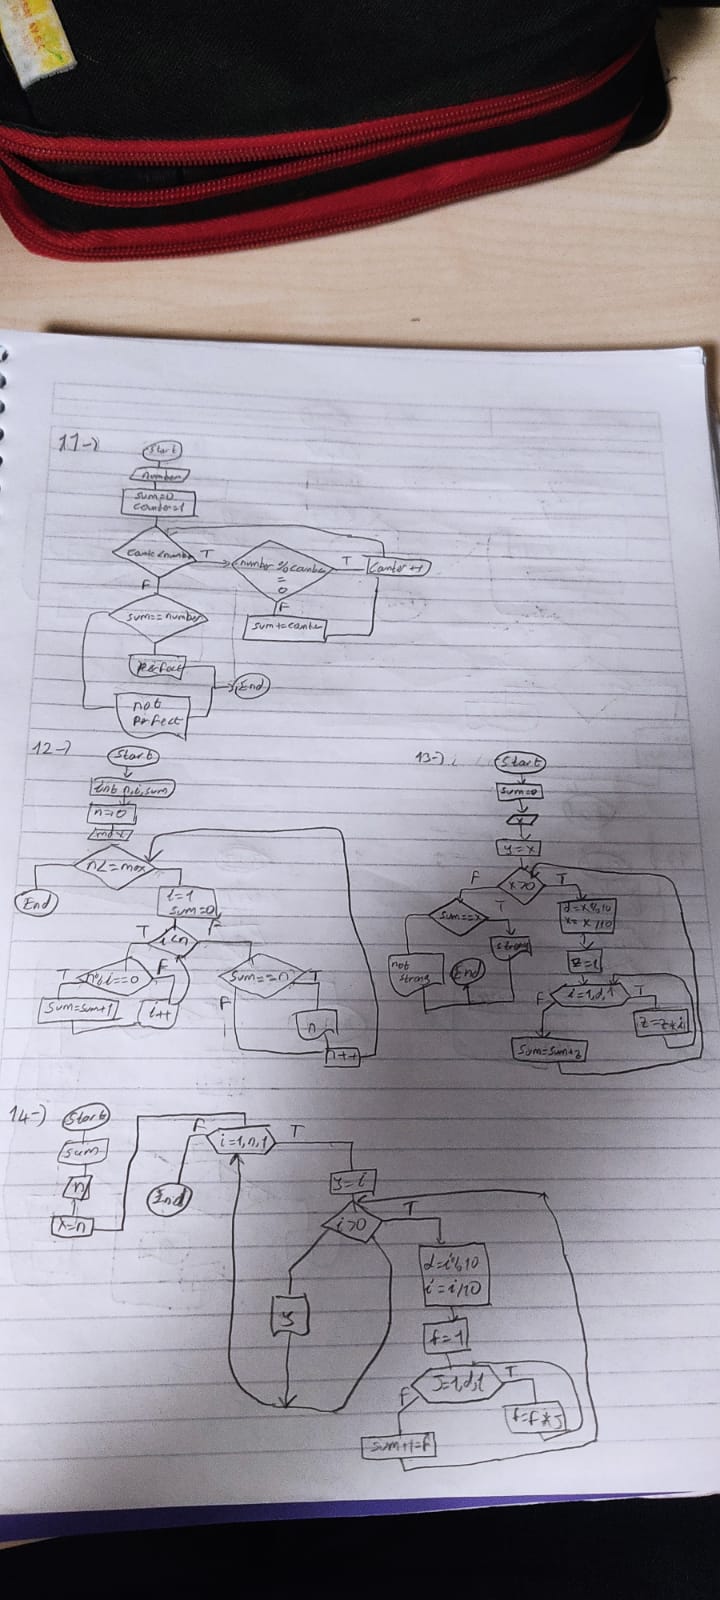 11-)
Start
number
sum=0
counter=1
counter<number
T
number % counter
=
0
T
Counter++
F
F
sum==number
sum+=counter
perfect
End
not
perfect
12-)
Start
int n,i,sum
n=0
max
n<=max
End
i=1
sum=0
T
i<n
F
T
n%i==0
F
sum==n
T
sum=sum+1
i++
F
n
n++
13-)
Start
sum=0
x
y=x
F
x>0
T
sum==x
T
d=x%10
x=x/10
strong
z=1
not
strong
End
F
i=1,d,1
T
z=z*i
sum=sum+z
14-)
Start
sum
n
x=n
F
i=1,n,1
T
End
y=i
i>0
T
d=i%10
i=i/10
y
f=1
J=1,d,1
T
F
f=f*J
sum+=f